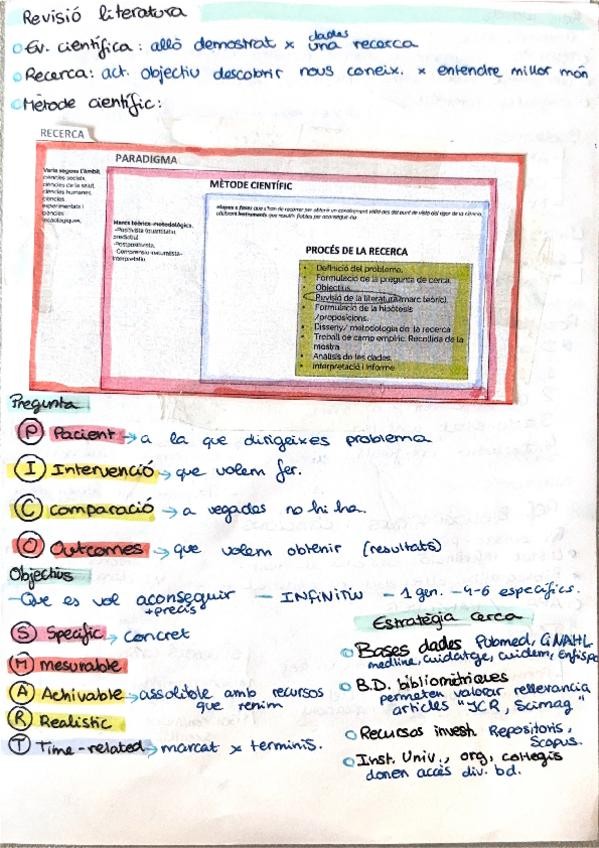 Revisió literatura
Ev. científica: allò demostrat x dades una recerca
Recerca: act. objectiu descobrir nous coneix. x entendre millor món
Mètode científic:
RECERCA
PARADIGMA
MÈTODE CIENTÍFIC
Varia segons l'àmbit,
ciències socials,
ciències de la salut,
ciències humanes,
ciències
experimentals i
ciències
tecnològiques,
Marcs teòrico-metodològics.
-Positivista
-Postpositivista,
-Comprensiu-naturalista-
interpretatiu
PROCÉS DE LA RECERCA
• Definició del problema.
Formulació de la pregunta de cerca.
• Objectius.
• Revisió de la literatura(marc teòric).
• Formulació de la hipòtesis
/proposicions.
• Disseny/ metodologia de la recerca
• Treball de camp empíric. Recollida de la
mostra
• Anàlisis de les dades.
• Interpretació i informe
Pregunta
P Pacient → a la que dirigeixes problema
I Intervenció → que volem fer.
C comparació → a vegades no hi ha.
O Outcomes → que volem obtenir (resultats)
Objectius
- Que es vol aconseguir - INFINITIU - 1 gen. - 4-6 específics.
+precís
S Specific → concret
M mesurable
A Achivable → assolible amb recursos
que tenim
R Realistic
T Time-related → marcat x terminis.
Estratègia cerca
Bases dades Pubmed, CINAHL
medline, cuidatge, cuidem, Enfispo
B.D. bibliomètriques
permeten valorar rellevancia
articles "JCR, Scimag"
Recursos invest. Repositoris,
Scopus.
Inst. Univ., org, col·legis
donen accés div. bd.